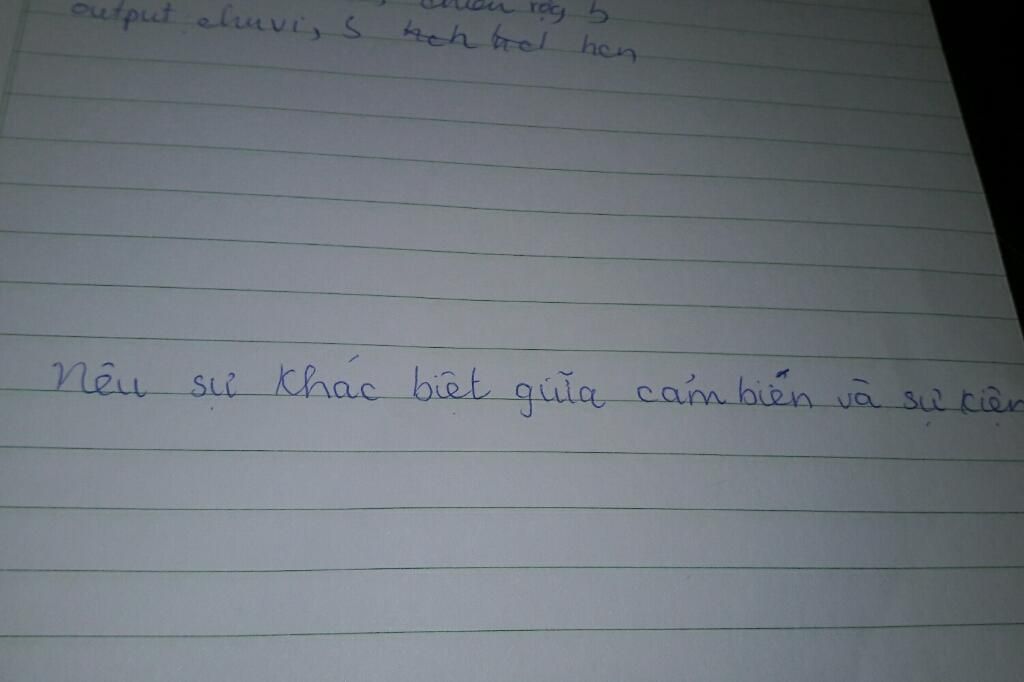 chiều rộg b
output chuvi, S hcn
Nêu sự khác biệt giữa cảm biến và sự kiện